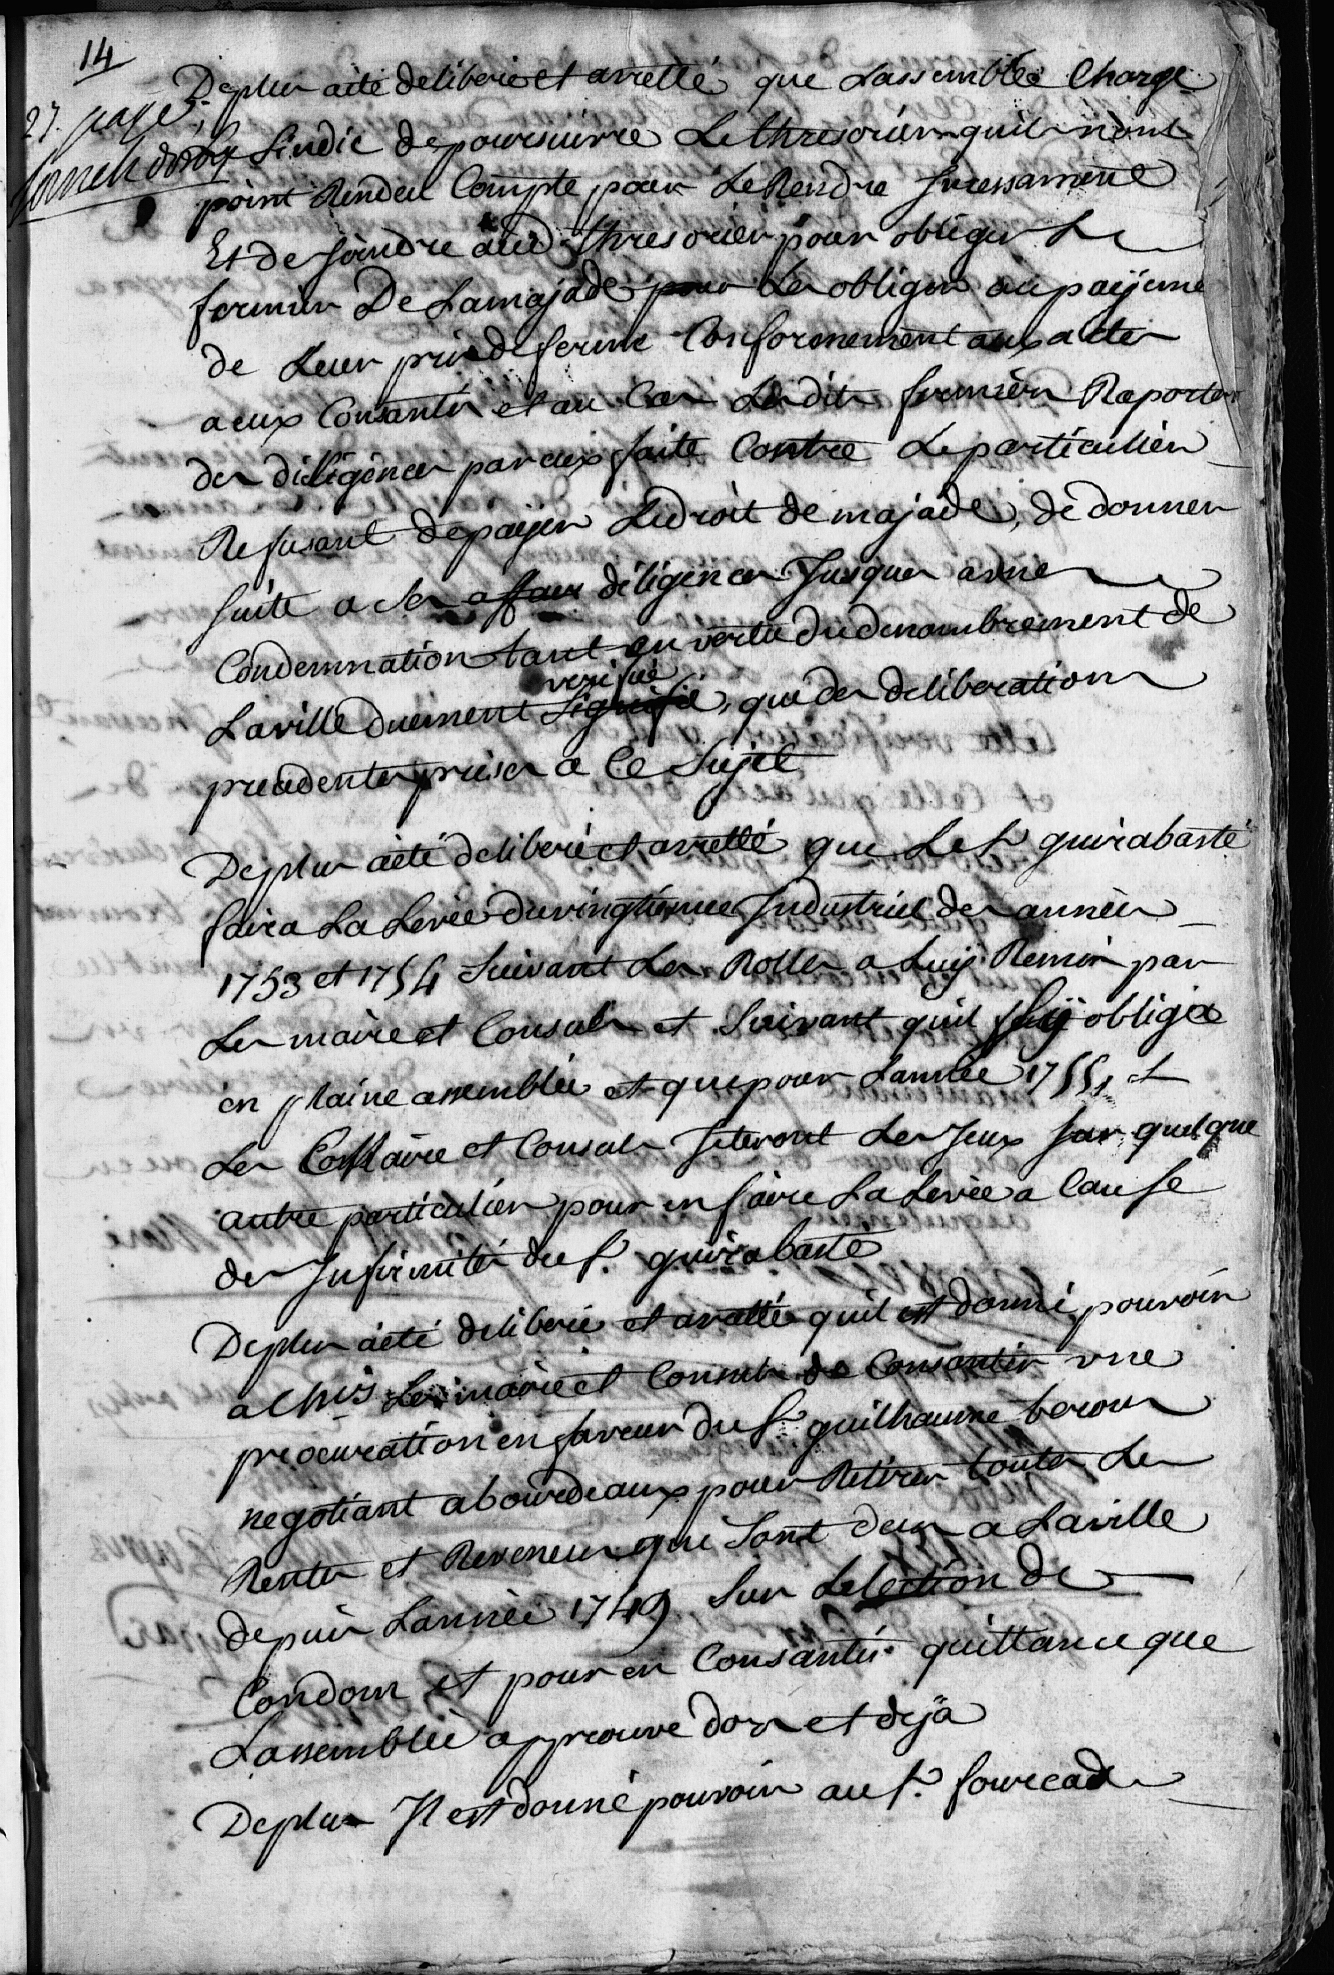 14
27. page
Deplus a èté deliberé et arretté que Lassemblée Charge
Sindic de poursuivre Le thresorier quil nont
point Rendeu Compte pour Le Rendre Incessament
Et de Joindre aud. thresorier pour obliger Le
fermier De Lamajade pour Les obliger au paÿeme
de Leur prix de ferme Conformement aux actes
a eux Consantis et au Cas Lesdits fermiers Raporter
des diligences par eux faite Contre Le particulier
Refusant de paÿer Le droit de majade, de donner
suite a ses affaires diligences Jusques a une
Condemnation tant en vertu du denombrement de
Laville duement signifié, que des deliberations
verifié
precedentes prises a Ce Sujet
Deplus a èté deliberé et arretté que Le Sr guirabaste
faira La Levée du vingtiéme Industriel des annèes
1753 et 1754 suivant Les Rolles a Luy Remis par
Les maire et Consuls et suivant quil sÿ obligea
en plaine assemblée et que pour Lannèe 1755, et
Les Maire et Consuls Jeteront Les Jeux sur quelque
autre particulier pour en faire La Levée a Cause
des Infirmités du S. guirabaste
Deplus a èté deliberé et arretté quil est donné pouvoir
a Mrs Les maire et Consuls de Consantir une
procuration en faveur du Sr guilhaume berou
negotiant a bourdeaux pour Retirer toutes Les
Rentes et Reveneus qui sont deus a Laville
depuis Lannèe 1749 sur Lelection de
Condom et pour en Consantir quittance que
Lassemblée approuve dors et dejà
Deplus Il est donné pouvoir au S. fourcade